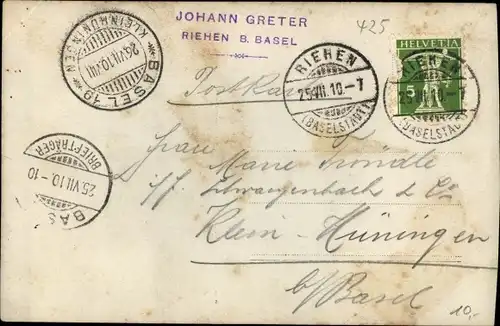 JOHANN GRETER
RIEHEN B. BASEL
425
BASEL 19
26.VII.10.-VIII
KLEINHÜNINGEN
RIEHEN
25.VII.10.-7
(BASELSTADT)
HELVETIA
5
RIEHEN
25.VII.10.-7
(BASELSTADT)
Postkarte
BAS
25.VII.10.-10
BRIEFTRÄGER
Frau Marie Tröndle
p/f Schwarzenbach & Co
Klein-Hüningen
b/Basel
10,-